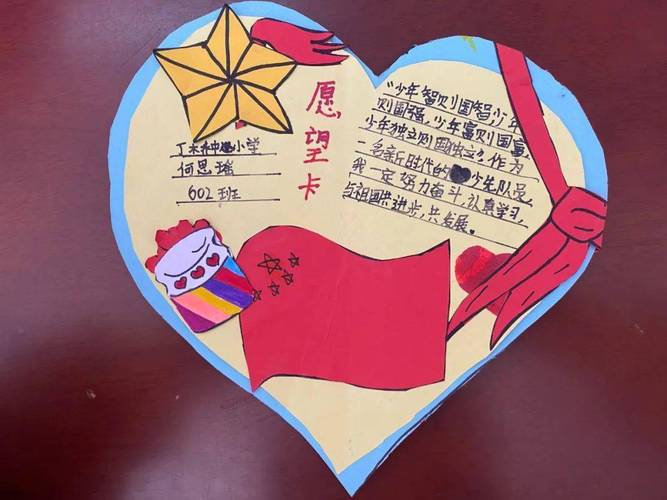 愿
望
卡
小学
何思瑶
602班
“少年智则国智，少年
则国强，少年富则国富，
少年独立则国独立”，作为
一名新时代的少先队员，
我一定努力奋斗，认真学习，
与祖国共进步，共发展。